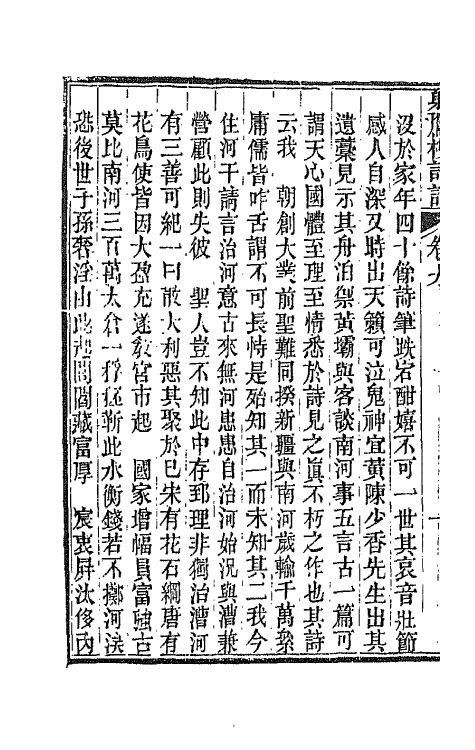 射鷹樓詩話 卷九
沒於家年四十餘詩筆跌宕酣嬉不可一世其哀音壯節
感人自深又時出天籟可泣鬼神宜黃陳少香先生出其
遺藁見示其舟泊禦黃壩與客談南河事五言古一篇可
謂天心國體至理至情悉於詩見之眞不朽之作也其詩
云我 朝創大業前聖難同揆新疆與南河歲輸千萬衆
庸儒皆咋舌謂不可長恃是殆知其一而未知其二我今
住河干請言治河意古來無河患患自治河始況與漕兼
營顧此則失彼 聖人豈不知此中存至理非獨治漕河
有三善可紀一曰散大利惡其聚於巳宋有花石綱唐有
花鳥使皆因大盈充遂敎宮市起 國家增幅員富強古
莫比南河三百萬太倉一稃秕靳此水衡錢若不擲河涘
恐後世子孫奢淫由此起閭閻藏富厚 宸衷屛汰侈內